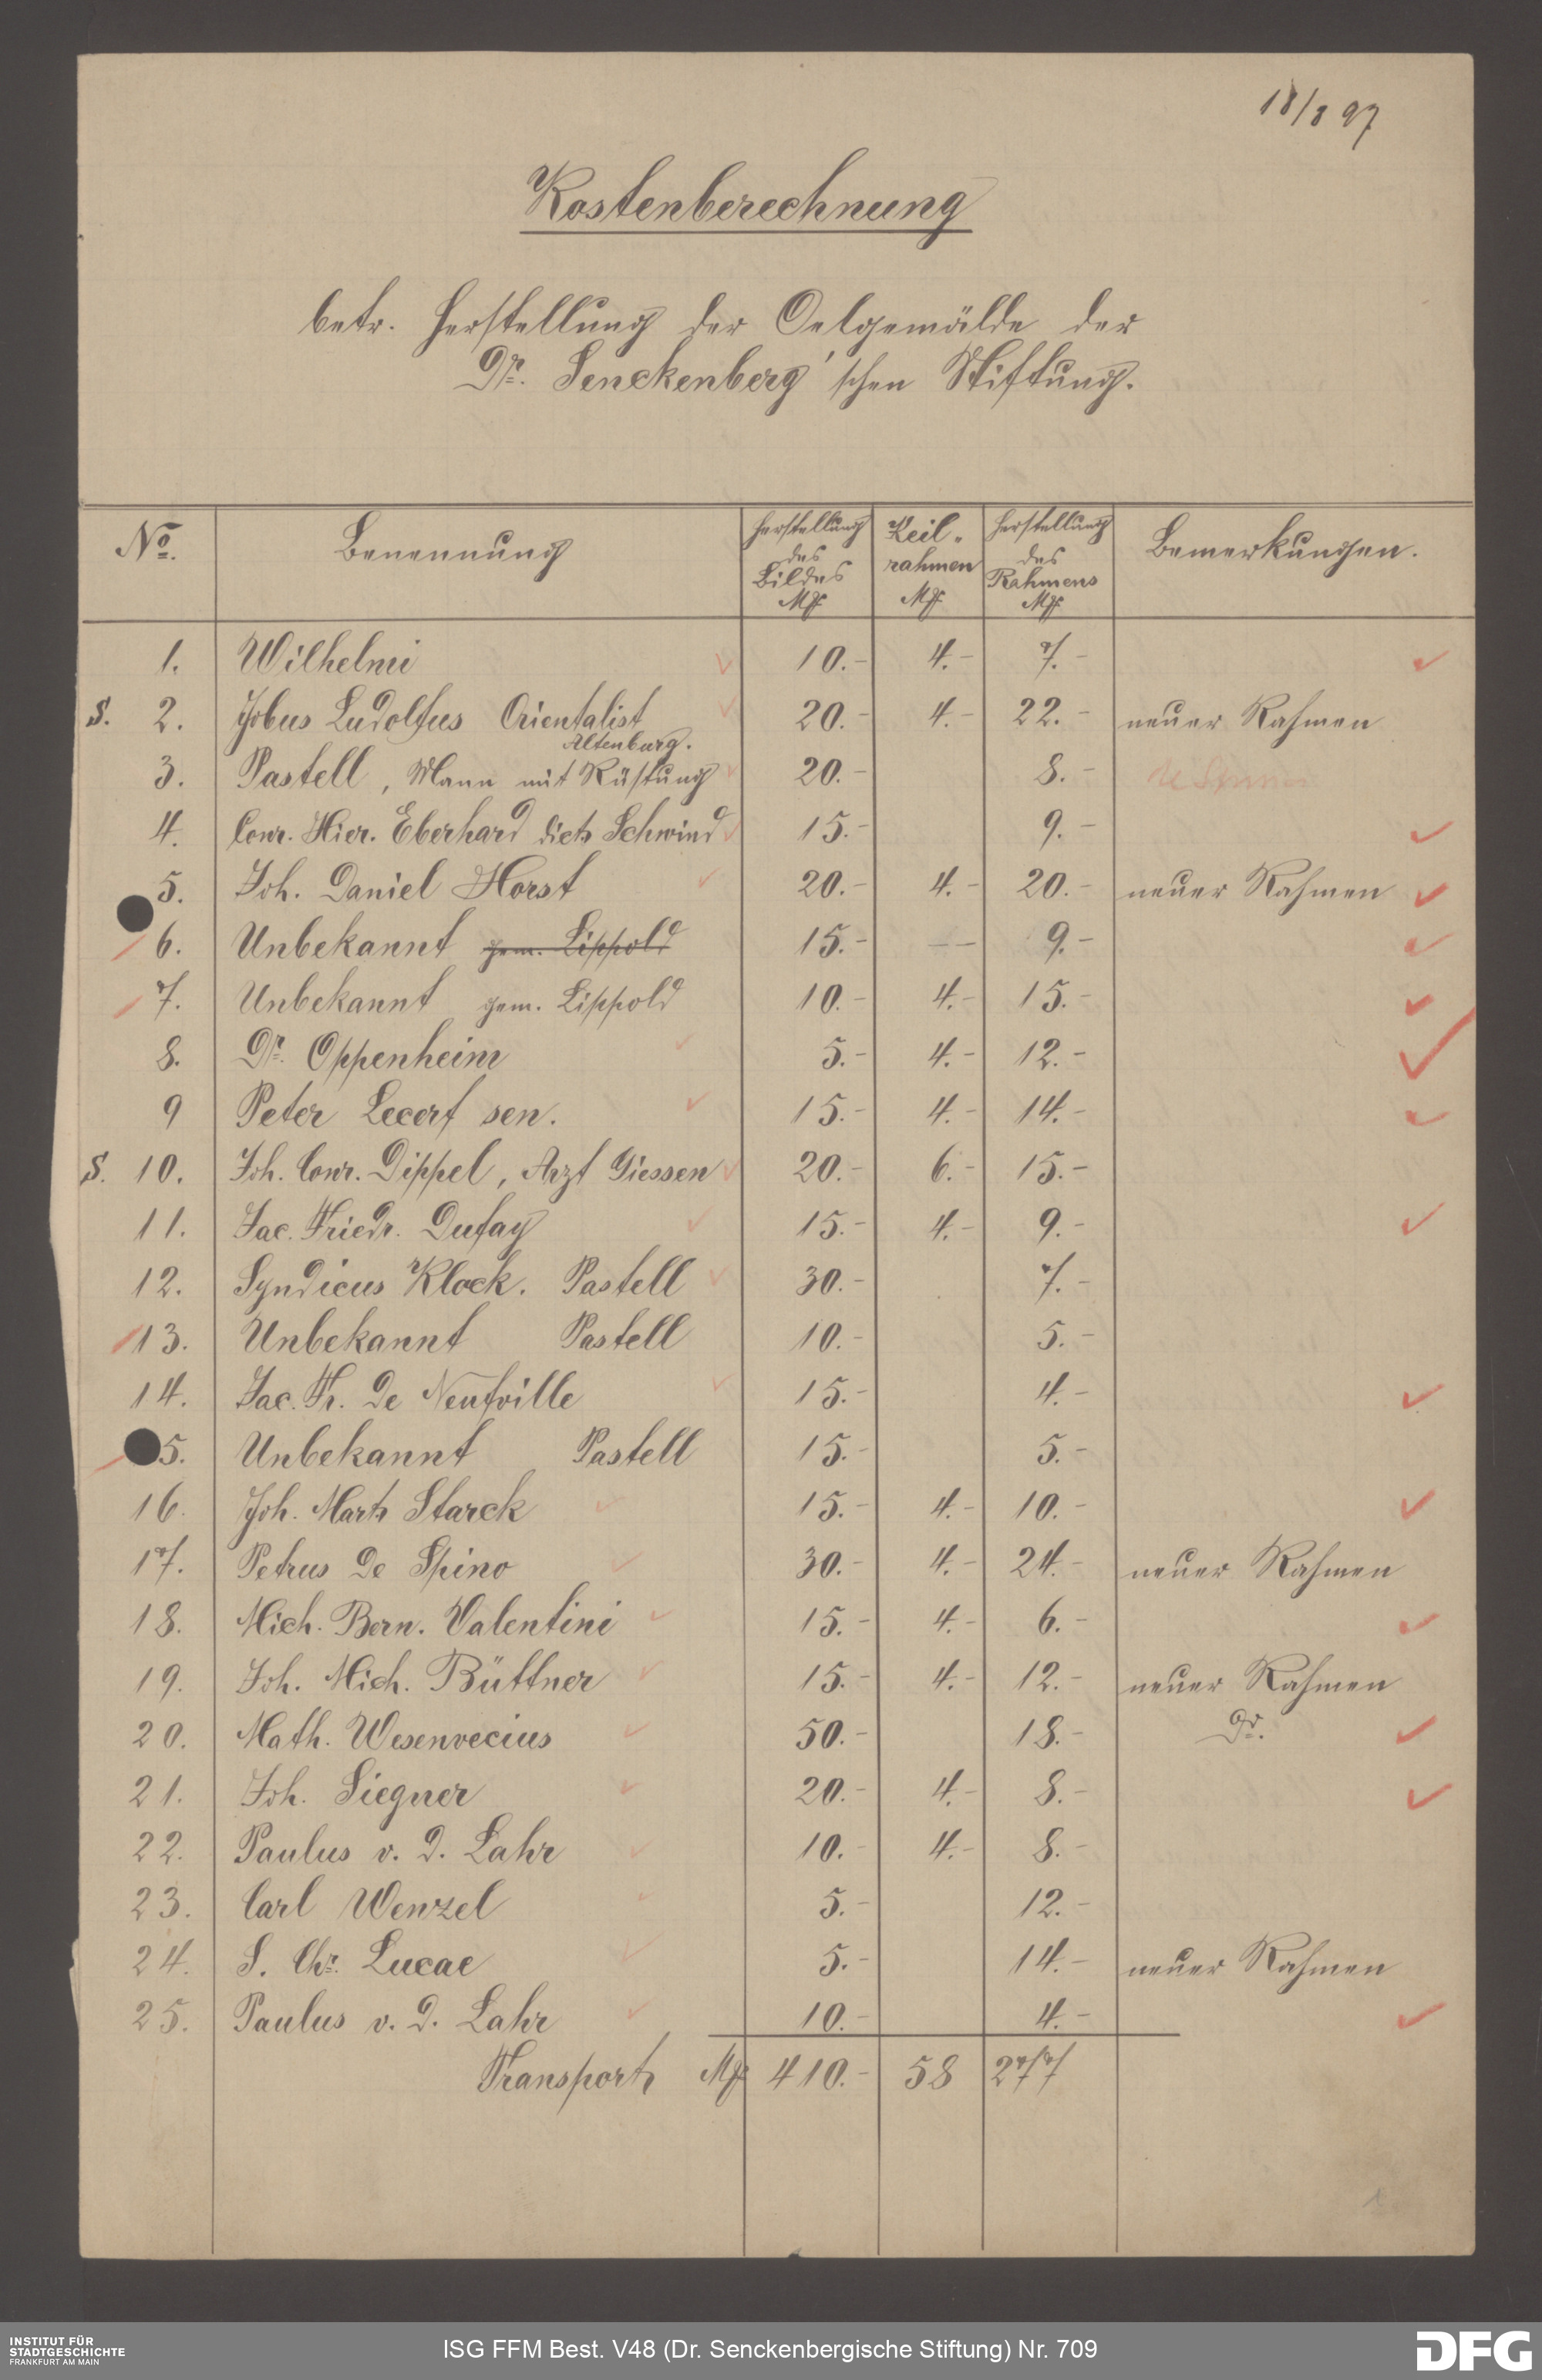 18/8 97
Kostenberechnung
betr. Herstellung der Oelgemälde der
Dr. Senckenberg'schen Stiftung.
No. Benennung Herstellung des Bildes Mk Keil-rahmen Mk Herstellung des Rahmens Mk Bemerkungen.
1. Wilhelmi 10.- 4.- 7.-
S. 2. Jobus Ludolfus Orientalist 20.- 4.- 22.- neuer Rahmen
Altenburg.
3. Pastell, Mann mit Rüstung 20.- 8.-
4. Conr. Hier. Eberhard dict. Schwind 15.- 9.-
5. Joh. Daniel Horst 20.- 4.- 20.- neuer Rahmen
6. Unbekannt gem. Lippold 15.- -- 9.-
7. Unbekannt gem. Lippold 10.- 4.- 15.-
8. Dr. Oppenheim 5.- 4.- 12.-
9 Peter Lecerf sen. 15.- 4.- 14.-
S. 10. Joh. Conr. Dippel, Arzt Giessen 20.- 6.- 15.-
11. Jac. Friedr. Dufay 15.- 4.- 9.-
12. Syndicus Klock. Pastell 30.- 7.-
13. Unbekannt Pastell 10.- 5.-
14. Jac. Fr. de Neufville 15.- 4.-
5. Unbekannt Pastell 15.- 5.-
16. Joh. Mart. Starck 15.- 4.- 10.-
17. Petrus de Spino 30.- 4.- 24.- neuer Rahmen
18. Mich. Bern. Valentini 15.- 4.- 6.-
19. Joh. Mich. Büttner 15.- 4.- 12.- neuer Rahmen
20. Math. Wesenvecius 50.- 18.- do.
21. Joh. Siegner 20.- 4.- 8.-
22. Paulus v. d. Lahr 10.- 4.- 8.-
23. Carl Wenzel 5.- 12.-
24. S. Chr. Lucae 5.- 14.- neuer Rahmen
25. Paulus v. d. Lahr 10.- 4.-
Transport Mk 410.- 58 277
INSTITUT FÜR
STADTGESCHICHTE
FRANKFURT AM MAIN
ISG FFM Best. V48 (Dr. Senckenbergische Stiftung) Nr. 709
DFG